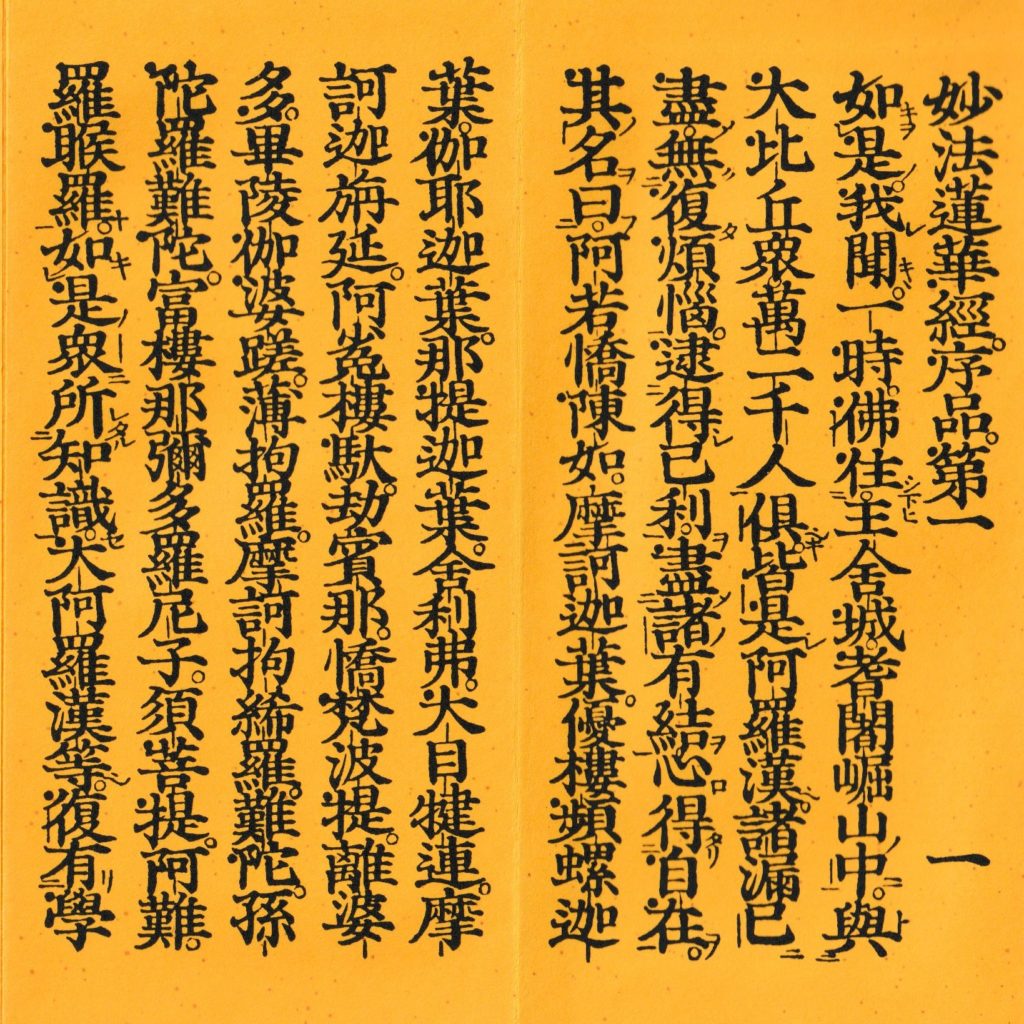 妙法蓮華經序品第一 一
如是我聞一時佛住王舍城耆闍崛山中與
大比丘衆萬二千人俱皆是阿羅漢諸漏已
盡無復煩惱逮得已利盡諸有結心得自在
其名曰阿若憍陳如摩訶迦葉優樓頻螺迦
葉伽耶迦葉那提迦葉舍利弗大目犍連摩
訶迦旃延阿㝹樓馱劫賓那憍梵波提離婆
多畢陵伽婆蹉薄拘羅摩訶拘絺羅難陀孫
陀羅難陀富樓那彌多羅尼子須菩提阿難
羅睺羅如是衆所知識大阿羅漢等復有學